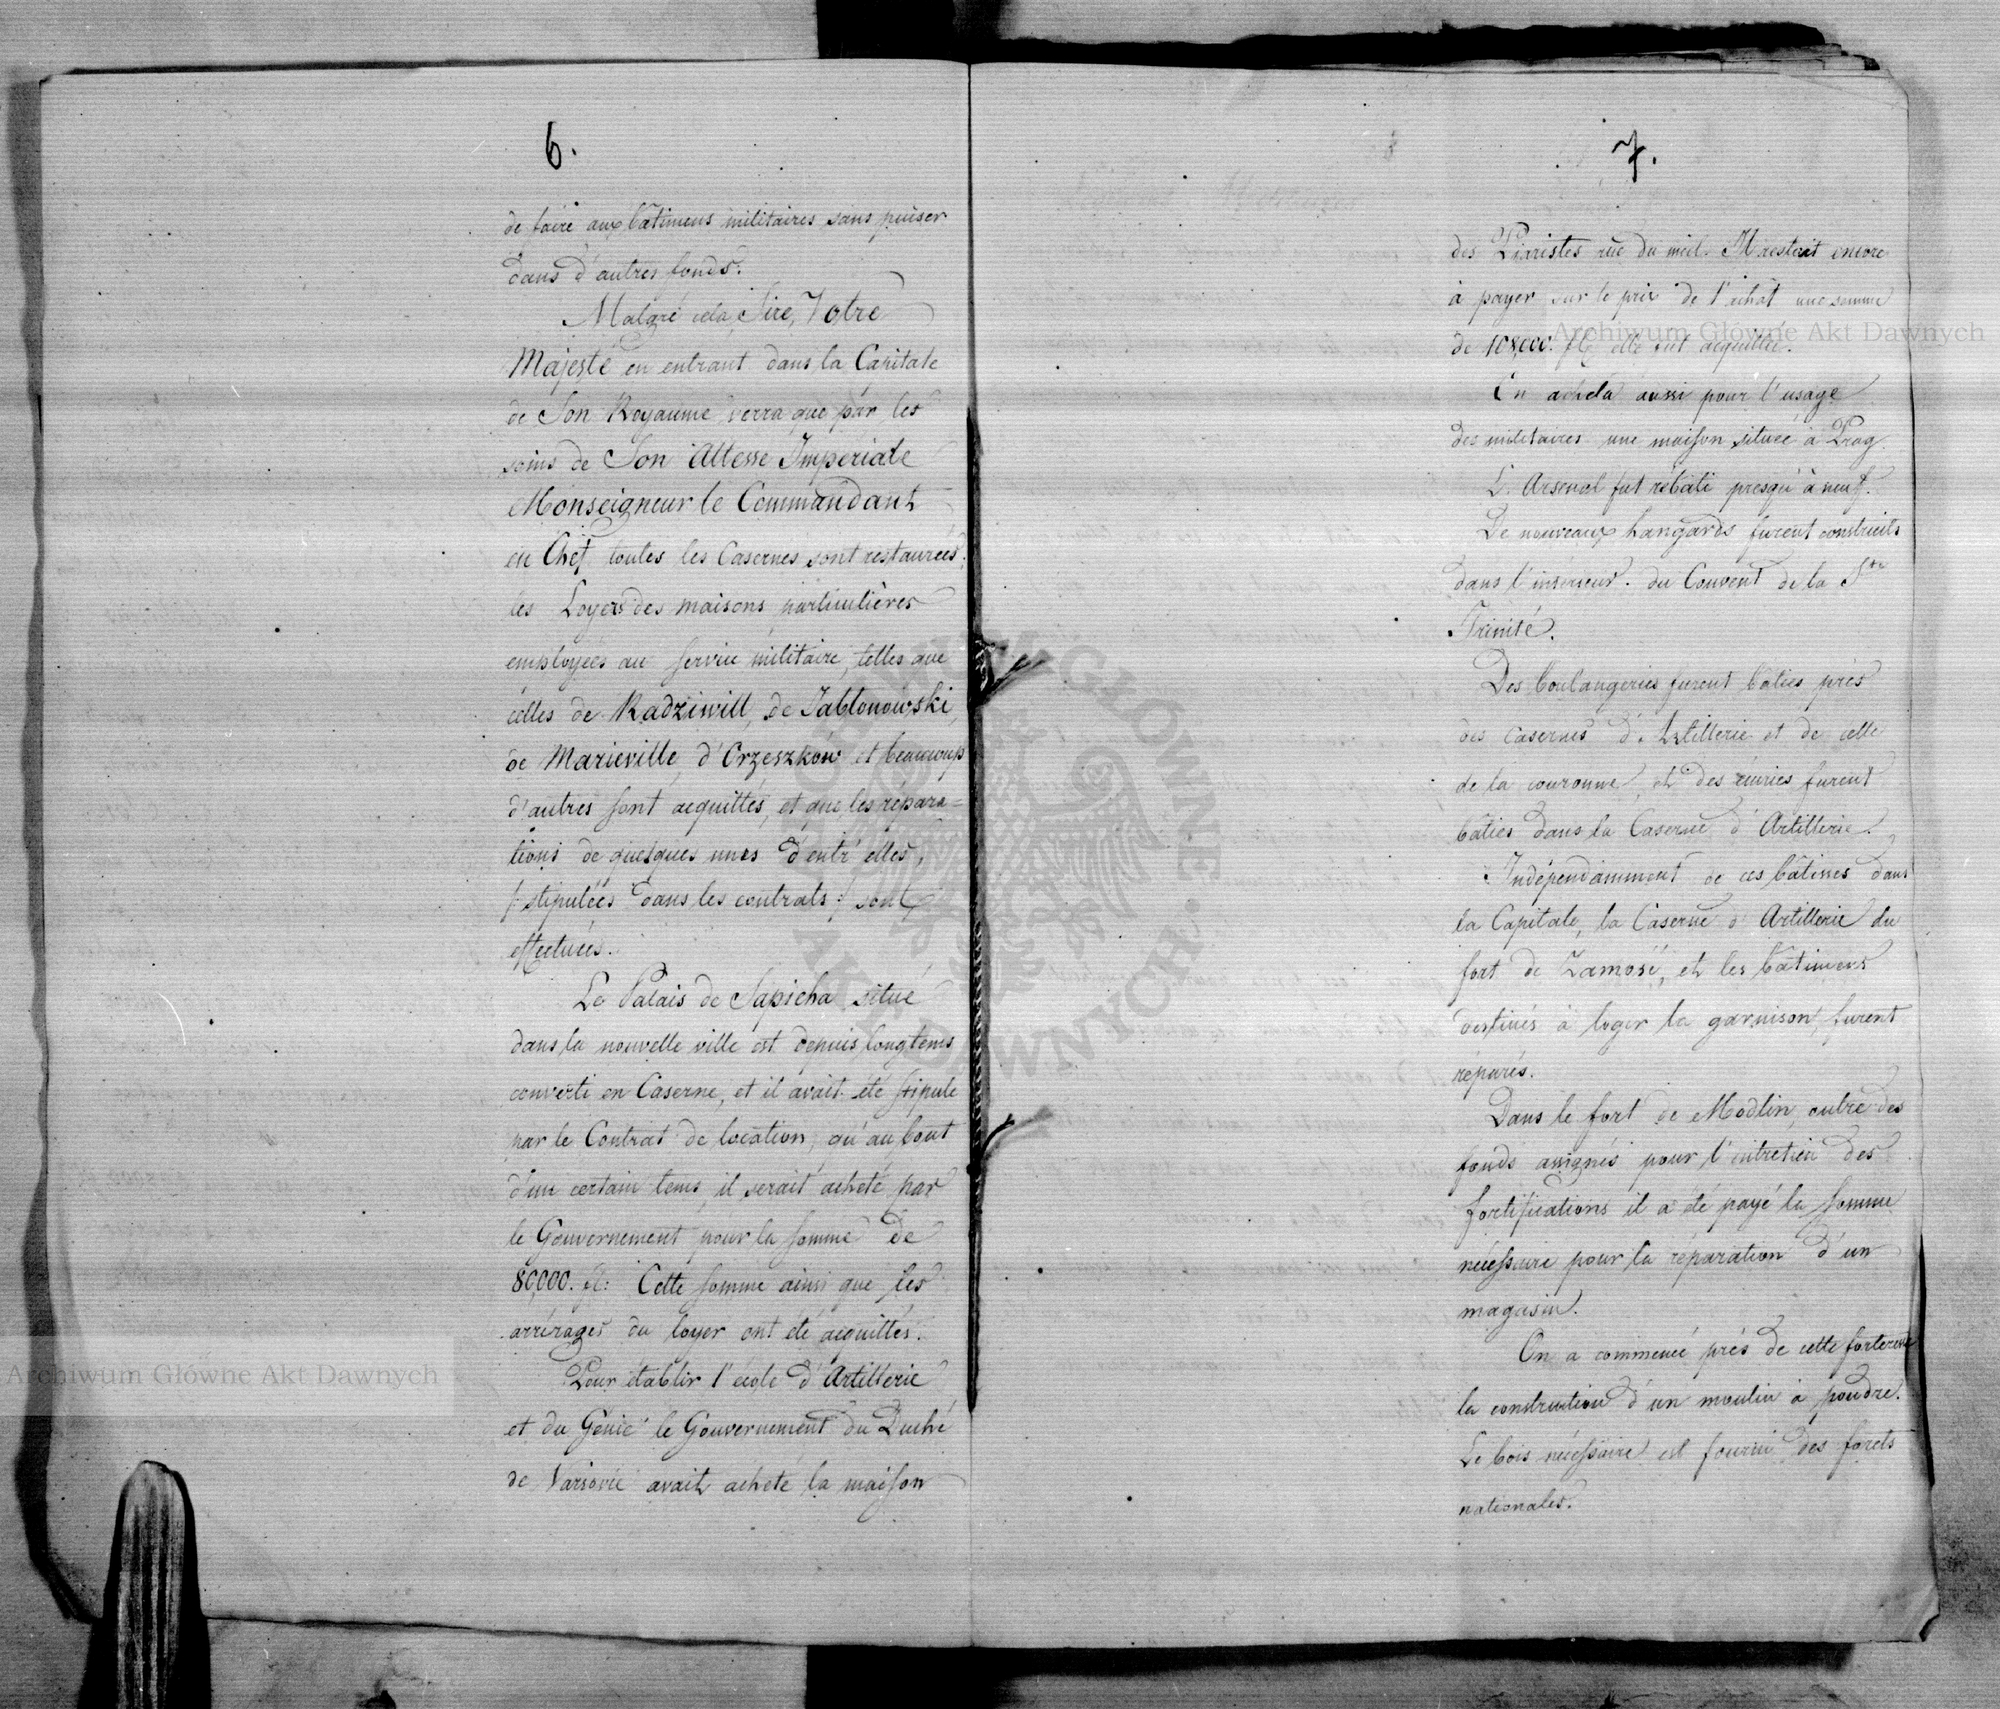 6.
de faire aux bâtimens militaires sans puiser
dans d'autres fonds.
Malgré cela, Sire, Votre
Majesté en entrant dans la Capitale
de Son Royaume verra que par les
soins de Son Altesse Imperiale
Monseigneur le Commandant
en Chef toutes les Casernes sont restaurées:
les Loyers des maisons particulières
employées au service militaire, telles que
celles de Radziwill, de Jablonowski,
de Marieville, d'Orzeszków et beaucoup
d'autres sont acquittés, et que les répara=
tions de quelques unes d'entr'elles,
/: stipulées dans les contrats :/ sont
effectuées.
Le Palais de Sapieha situé
dans la nouvelle ville est depuis longtems
converti en Caserne, et il avait été stipulé
par le Contrat de location, qu'au bout
d'un certain tems, il serait acheté par
le Gouvernement pour la somme de
80,000. fl: Cette somme ainsi que les
arrérages du loyer ont été acquittés.
Pour établir l'école d'Artillerie
et du Génie le Gouvernement du Duché
de Varsovie avait acheté la maison
7.
des Piaristes rue du miel. Il restait encore
à payer sur le prix de l'achat une somme
de 108,000. fl: elle fut acquittée.
On acheta aussi pour l'usage
des militaires une maison située à Prag.
L'Arsenal fut rébati presqu'à neuf.
De nouveaux hangards furent construits
dans l'intérieur du Couvent de la Ste
Trinité.
Des boulangeries furent bâties près
des casernes d'Artillerie et de celle
de la couronne, et des écuries furent
bâties dans la Caserne d'Artillerie.
Indépendamment de ces bâtisses dans
la Capitale, la Caserne d'Artillerie du
fort de Zamość, et les bâtimens
destinés à loger la garnison, furent
réparés.
Dans le fort de Modlin, outre des
fonds assignés pour l'entretien des
fortifications il a été payé la somme
nécessaire pour la réparation d'un
magasin.
On a commencé près de cette forteresse
la construction d'un moulin à poudre.
Le bois nécessaire est fourni des forets
nationales.
Archiwum Główne Akt Dawnych
Archiwum Główne Akt Dawnych
ARCHIWUM GŁÓWNE AKT DAWNYCH